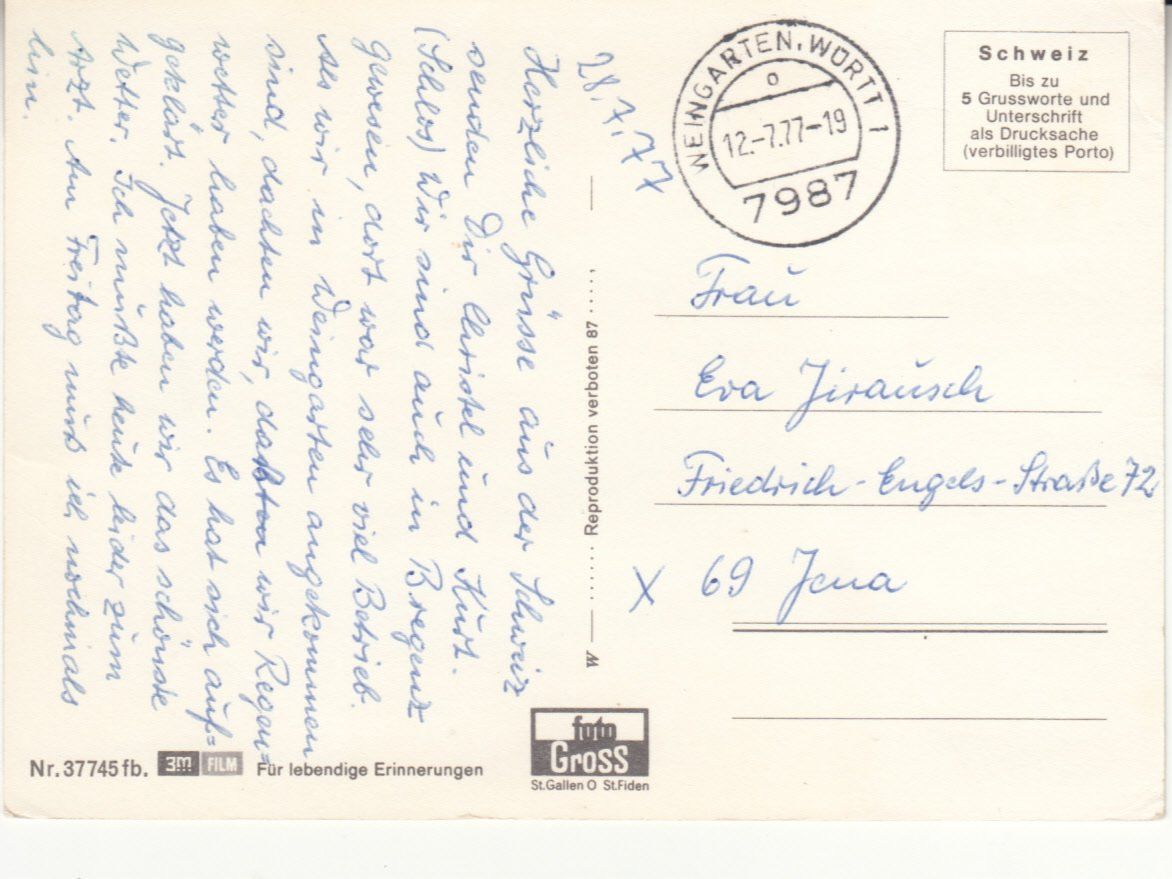 Herzliche Grüsse aus der Schweiz
senden Dir Christel und Kurt.
(Schlos) Wir sind auch in Bregenz
gewesen, dort war sehr viel Betrieb.
Als wir in Weingarten angekommen
sind, dachten wir, daß wir Regen=
wetter haben werden. Es hat sich auf=
geklärt. Jetzt haben wir das schönste
Wetter. Ich mußte heute leider zum
Arzt. Am Freitag muß ich nochmals
hin.
28.7.77
WEINGARTEN, WÜRTT 1
12.-7.77-19
7987
Schweiz
Bis zu
5 Grussworte und
Unterschrift
als Drucksache
(verbilligtes Porto)
Frau
Eva Jirausch
Friedrich-Engels-Straße 72
X 69 Jena
W — ...... Reproduktion verboten 87 ....., —
foto
Gross
St.Gallen O St.Fiden
Nr. 37745 fb. 3M FILM Für lebendige Erinnerungen